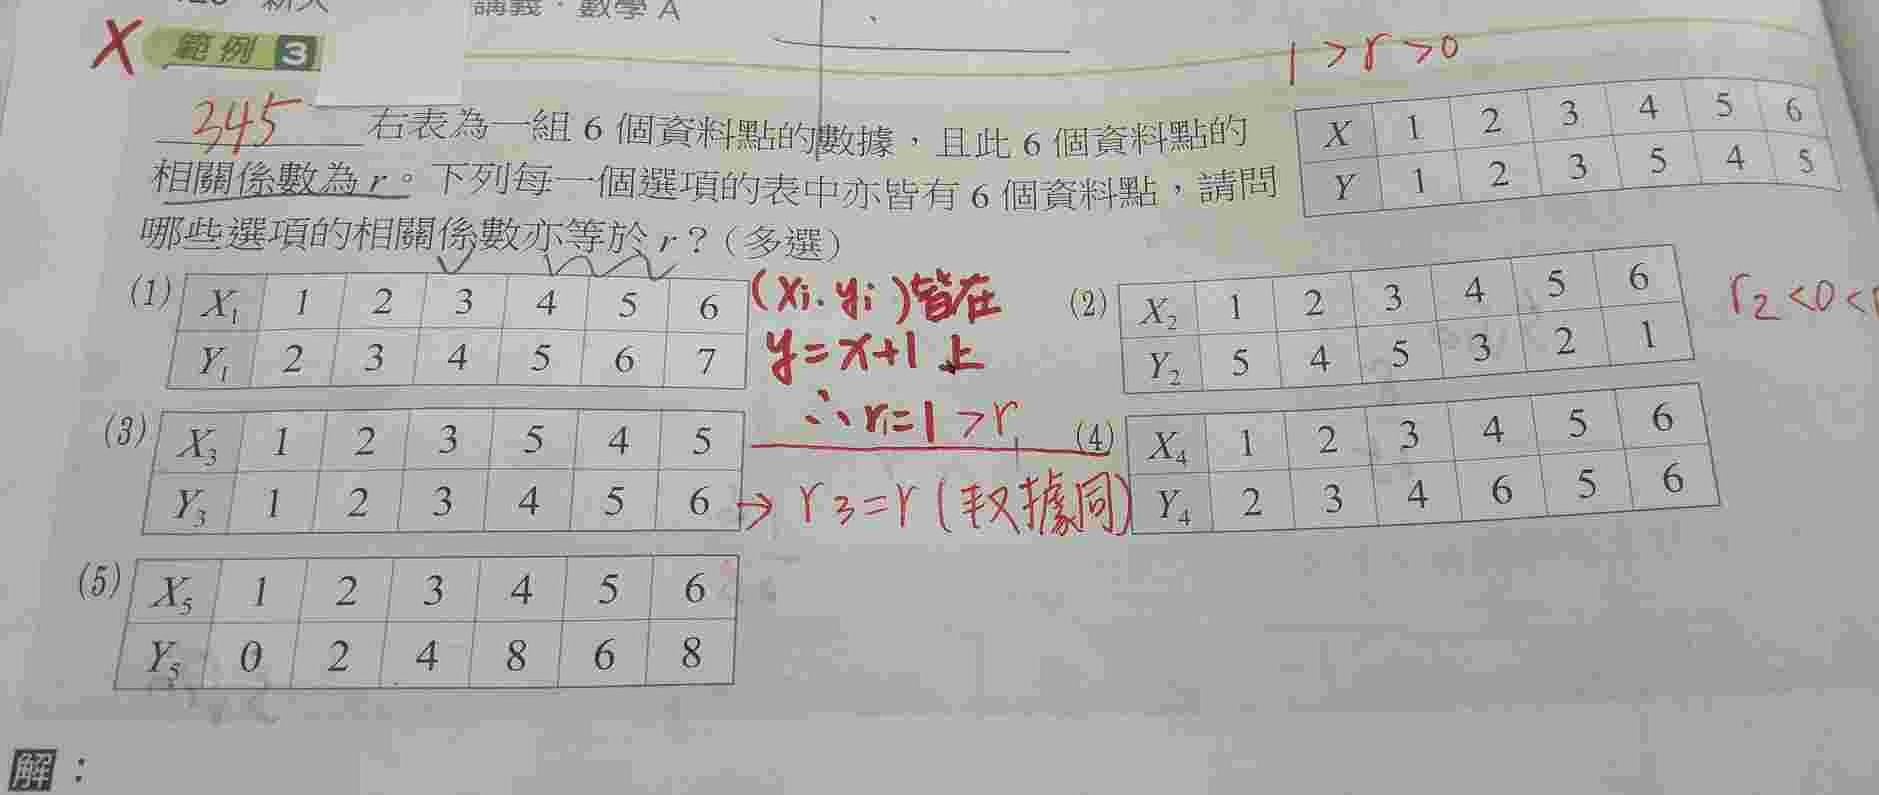 講義．數學 A
X 範例 3
1 > r > 0
345 右表為一組 6 個資料點的數據，且此 6 個資料點的
相關係數為 r。下列每一個選項的表中亦皆有 6 個資料點，請問
哪些選項的相關係數亦等於 r？(多選)
X 1 2 3 4 5 6
Y 1 2 3 5 4 5
(1) X₁ 1 2 3 4 5 6
Y₁ 2 3 4 5 6 7
(xi, yi) 皆在
y = x+1 上
∴ r₁ = 1 > r
(2) X₂ 1 2 3 4 5 6
Y₂ 5 4 5 3 2 1
r₂ < 0 < r
(3) X₃ 1 2 3 5 4 5
Y₃ 1 2 3 4 5 6
→ r₃ = r (取據同)
(4) X₄ 1 2 3 4 5 6
Y₄ 2 3 4 6 5 6
(5) X₅ 1 2 3 4 5 6
Y₅ 0 2 4 8 6 8
解：